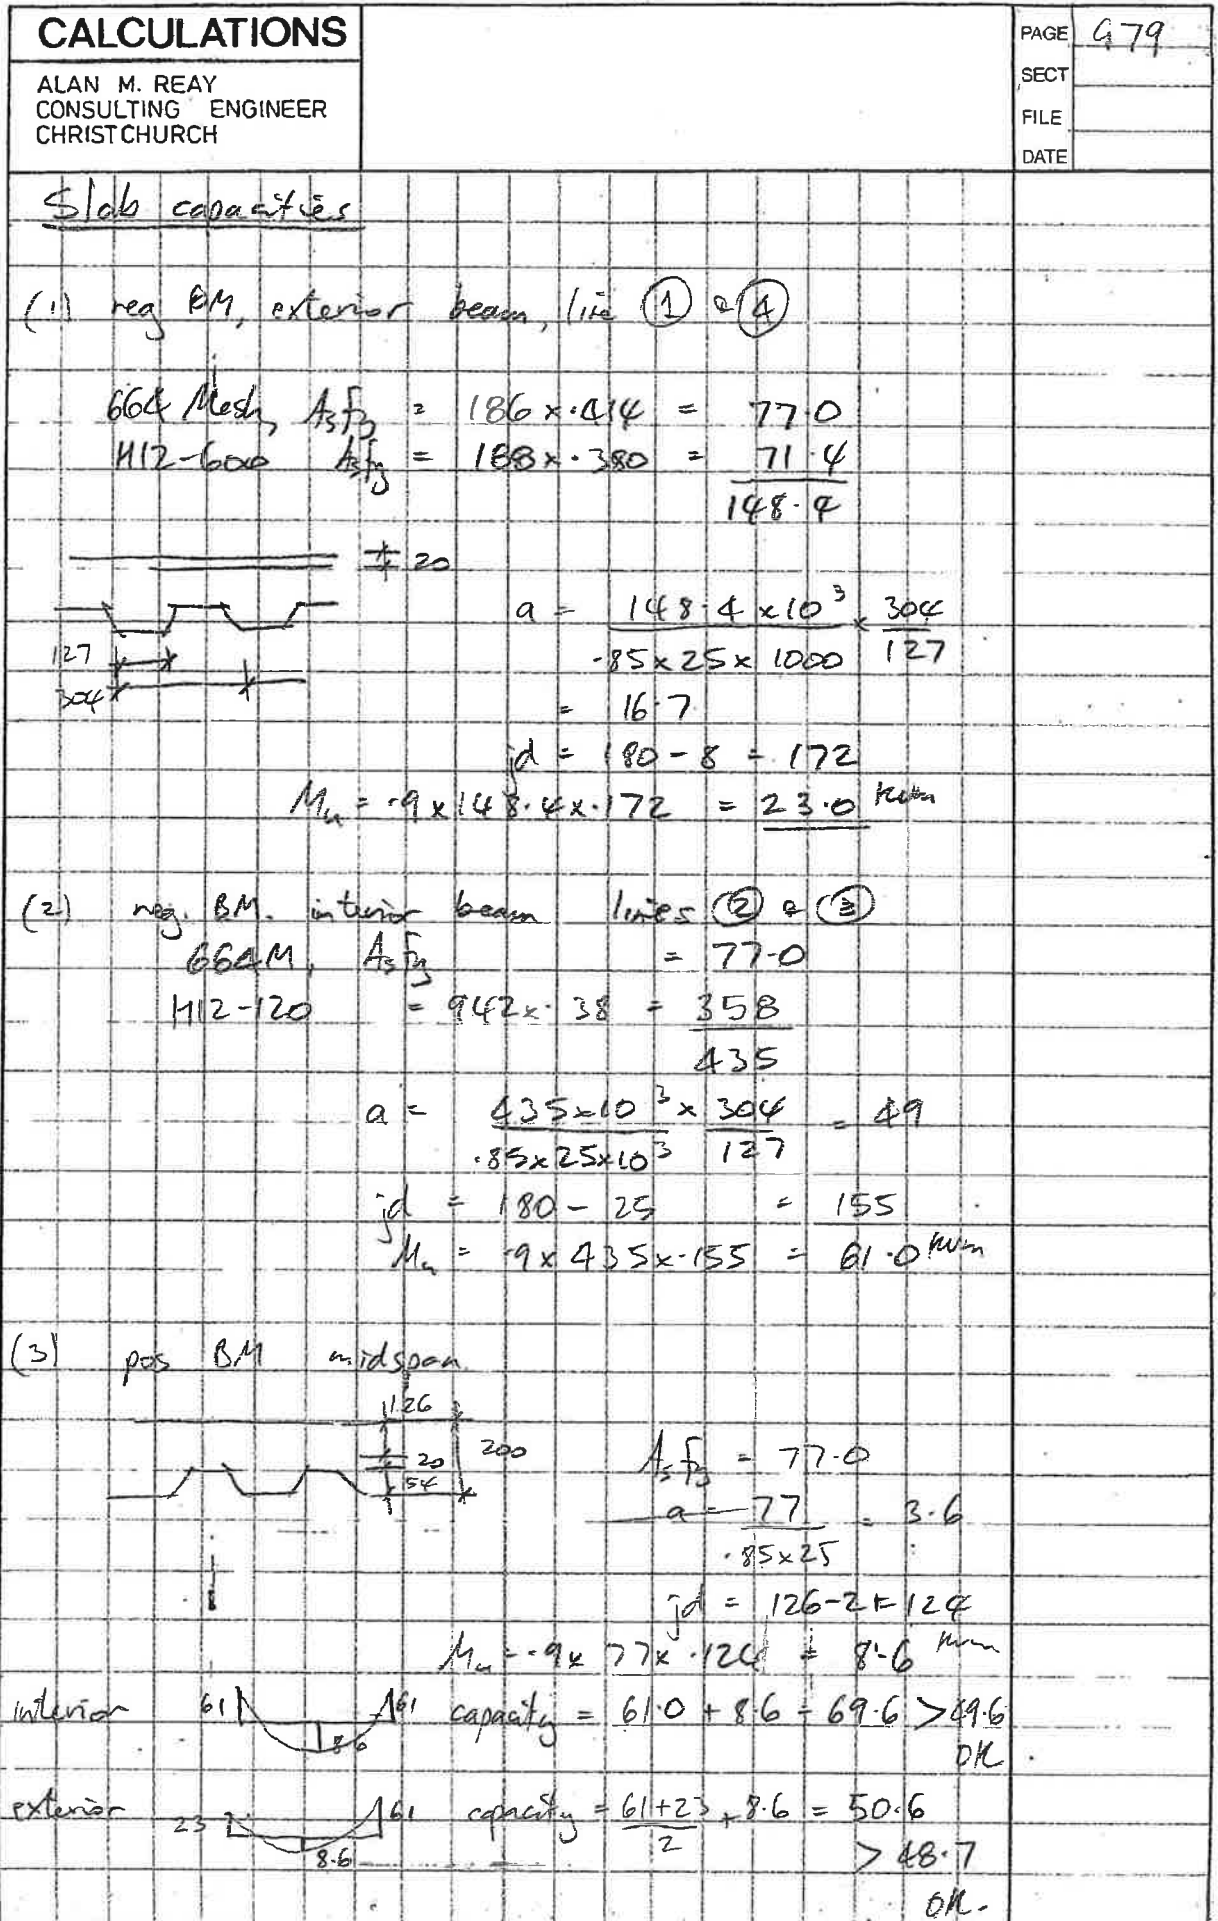 CALCULATIONS
ALAN M. REAY
CONSULTING ENGINEER
CHRISTCHURCH
PAGE G79
SECT
FILE
DATE
Slab capacities
(1) neg BM, exterior beam, line ① & ④
664 Mesh, Asfy = 186 x .414 = 77.0
H12-600 Asfy = 188 x .380 = 71.4
148.4
20
127
304
a = 148.4 x 10³ / .85 x 25 x 1000 x 304 / 127
= 16.7
jd = 180 - 8 = 172
Mu = .9 x 148.4 x .172 = 23.0 kNm
(2) neg. BM. interior beam lines ② & ③
664M, Asfy = 77.0
H12-120 = 942 x .38 = 358
435
a = 435 x 10³ / .85 x 25 x 10³ x 304 / 127 = 49
jd = 180 - 25 = 155
Mu = .9 x 435 x .155 = 61.0 kNm
(3) pos BM midspan
126
20
54
200
Asfy = 77.0
a = 77 / .85 x 25 = 3.6
jd = 126 - 2 = 124
Mu = .9 x 77 x .124 = 8.6 kNm
interior 61 61 8.6 capacity = 61.0 + 8.6 = 69.6 > 49.6
OK
exterior 23 61 8.6 capacity = 61+23 / 2 + 8.6 = 50.6
> 48.7
OK.